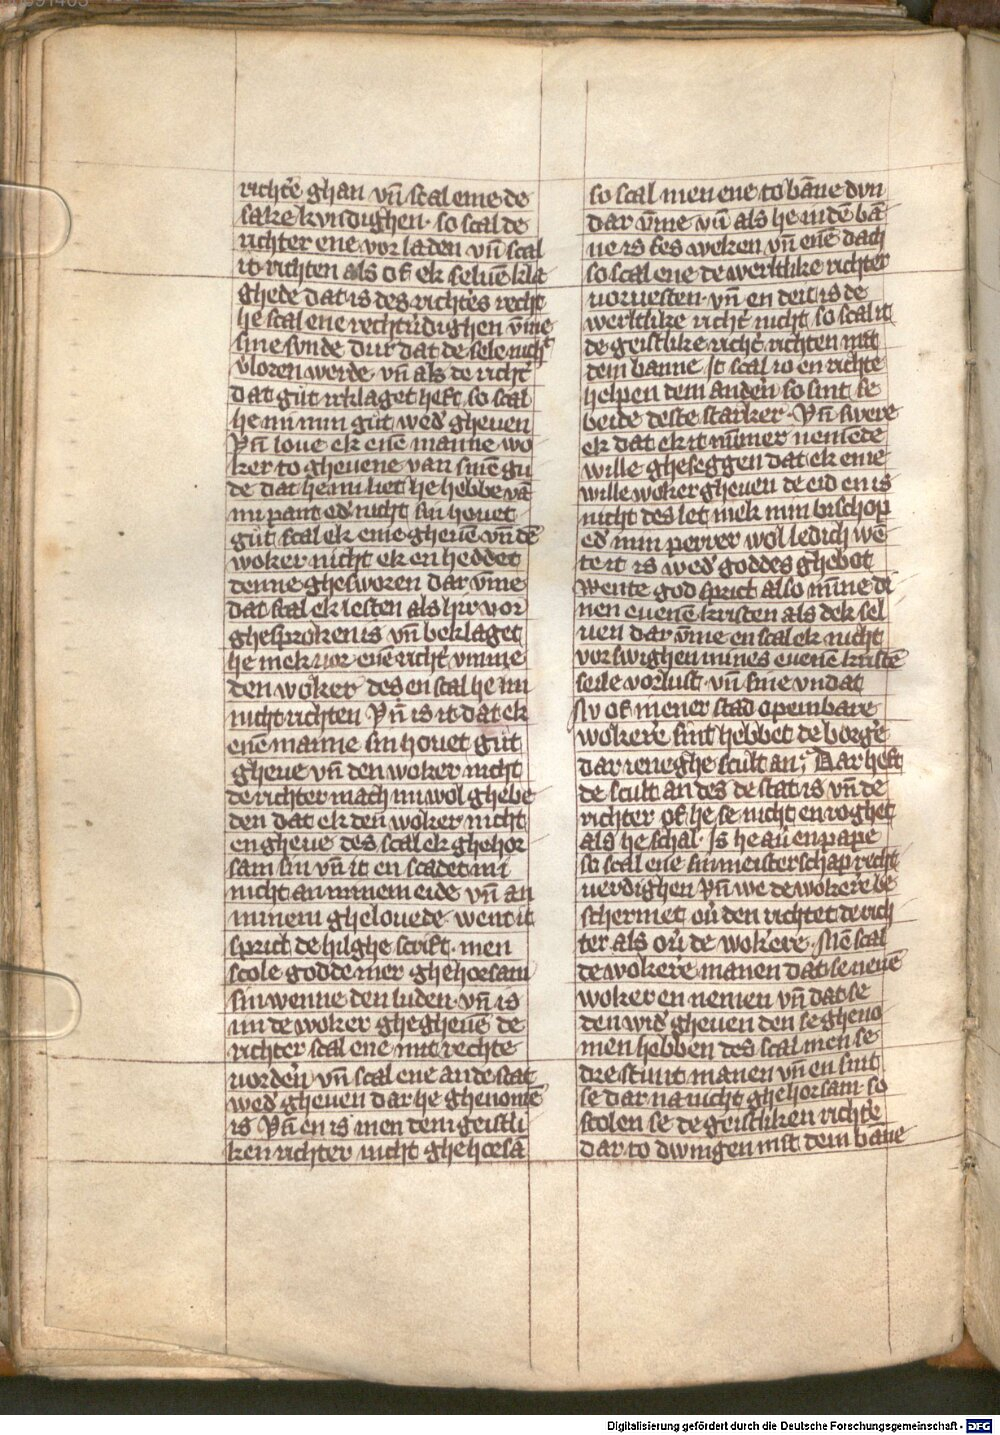 richt̄e ghan vn̄ scal eme de
sake kvndighen· so scal de
richter ene vor laden vn̄ scal
it richten als of ek seluē kla
ghede dat is des richt̄es recht
he scal ene rechtv̄dighen v̄me
sine svnde dur dat de sele nicht
v̄loren werde· vn̄ als de richt̄
dat gůt irklaget heft so scal
he mi min gůt wed̄ gheuen
Vn̄ loue ek enē manne wo
ker to gheuene van sinē gu
de dat he mi liet he hebbe vā
mi pant ed̄ nicht sin houet
gůt scal ek eme gheuē vn̄ dē
woker nicht ek en heddet
denne ghesworen dar v̄me
dat scal ek lesten als hir vor
ghesproken is vn̄ beklaget
he mek vor enē richt̄ vmme
den woker des en scal he mi
nicht richten Vn̄ is it dat ek
enē manne sin houet gůt
gheue vn̄ den woker nicht
de richter mach mi wol ghebe
den dat ek den woker nicht
en gheue des scal ek ghehor
sam sin vn̄ it en scadet mi
nicht an minem eide vn̄ an
minem ghelouede went it
sprict de hilghe scrift· men
scole godde mer ghehorsam
sin wenne den luden· vn̄ is
mi de woker ghegheuē de
richter scal ene mit rechte
vorder̄ vn̄ scal ene an de stat
wed̄ gheuen dar he ghenomē
is Vn̄ en is men dem geistli
ken richter nicht ghehorsā
so scal men ene to bāne dvn
dar v̄me vn̄ als he in dē bā
ne is ses weken vn̄ enē dach
so scal ene de werltlike richter
voruesten· vn̄ en deit is de
werltlike richt̄ nicht so scal it
de geistlike richt̄ richten mit
dem banne It scal io en richte
helpen dem ander̄ so sint se
beide deste starker· Vn̄ swere
ek dat ek it nūmer neniēde
wille gheseggen dat ek eme
wille woker gheuen de eid en is
nicht des let mek min bischop
ed̄ min perrer wol ledich wē
te it is wed̄ goddes ghebot
Wente god sprict also mīne di
nen euenē kristen als dek sel
uen dar v̄me en scal ek nicht
vorswighen mines euenē kristē
seile vorlust· vn̄ sine vndat
Sv of in ener stad openbare
wokere sint hebbet de borge
dar ieneghe scult an; Dar heft
de scult an des de stat is vn̄ de
richter of he se nicht en roghet
als he schal· Is he au̇ en pape
so scal ene sin meisterschap recht
uerdighen Vn̄ we de woker̄e be
schermet ou̇ den richtet de rich
ter als ou̇ de woker̄e· Mē scal
de woker̄e manen dat se nenē
woker en nemen vn̄ dat se
den wid̄ gheuen den se gheno
men hebben des scal men se
dre stunt manen vn̄ en sint
se dar na nicht ghehorsam so
scolen se de geistliken richt̄e
dar to dwingen mit dem bāne
Digitalisierung gefördert durch die Deutsche Forschungsgemeinschaft - DFG